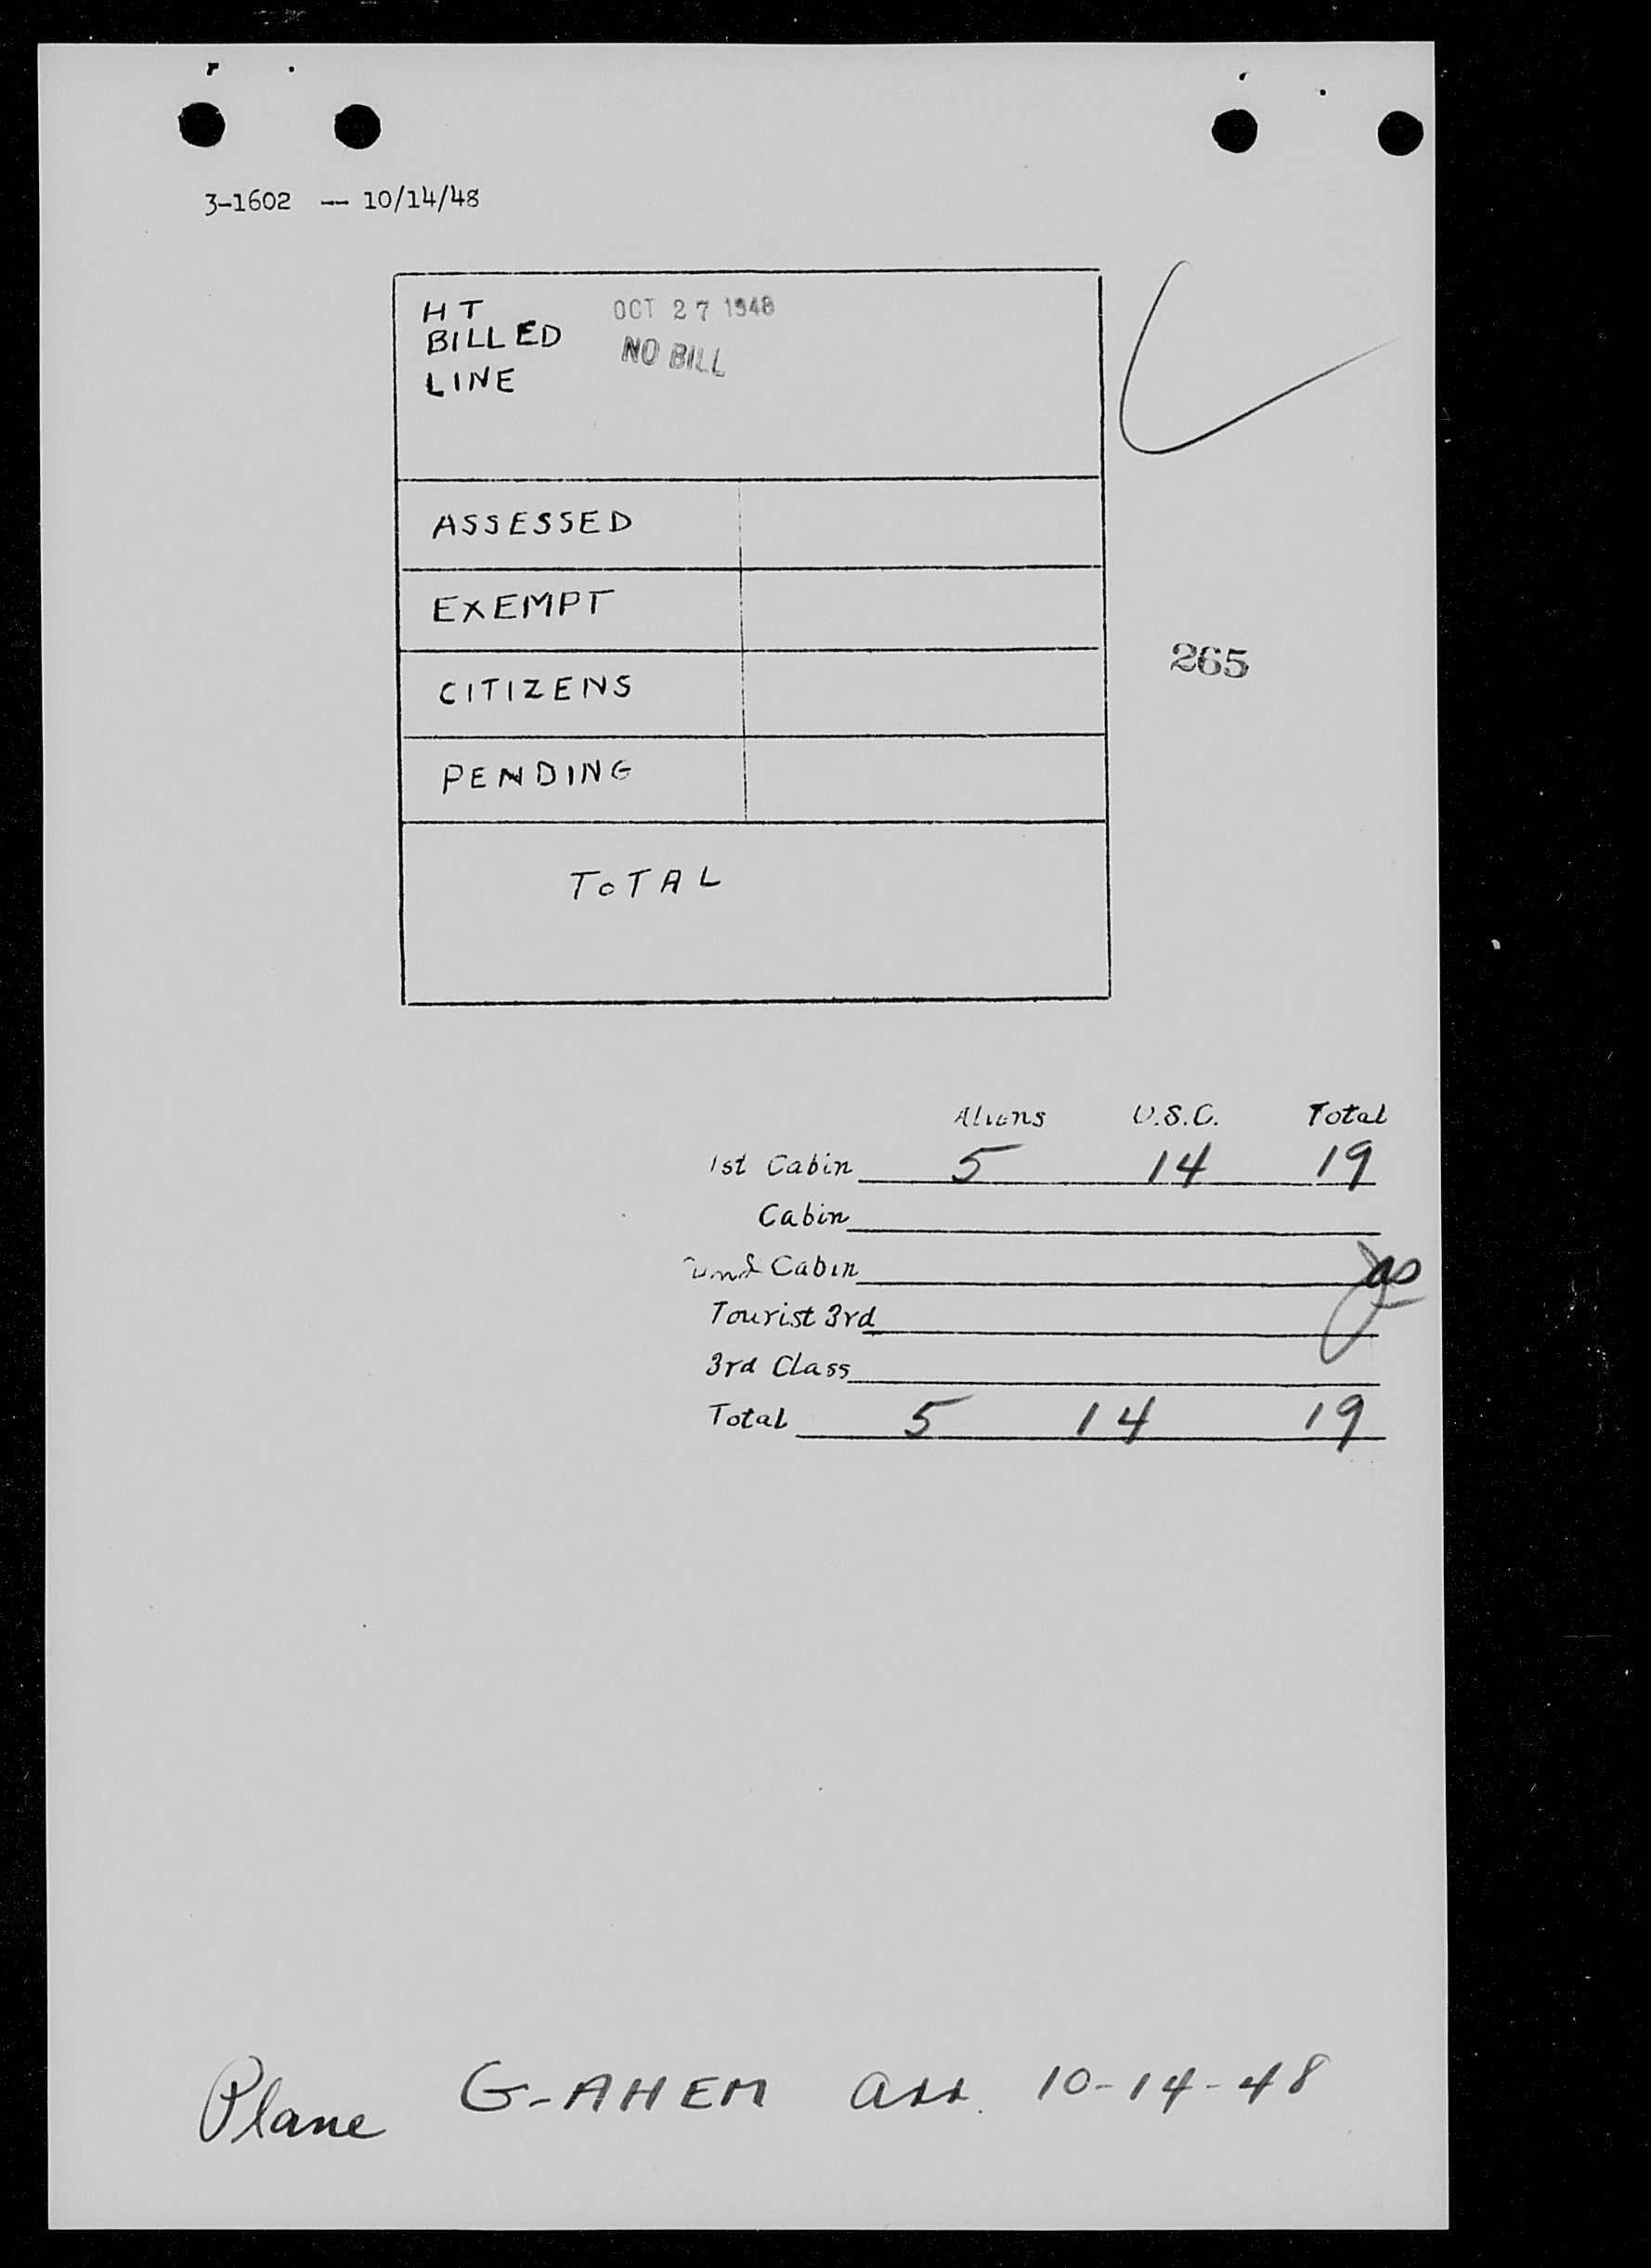 3-1602 -- 10/14/48
HT OCT 27 1948
BILLED NO BILL
LINE
ASSESSED
EXEMPT
265
CITIZENS
PENDING
TOTAL
Aliens U.S.C. Total
1st Cabin 5 14 19
Cabin
Cabin
Tourist 3rd
3rd Class
Total 5 14 19
Plane G-AHEM arr. 10-14-48